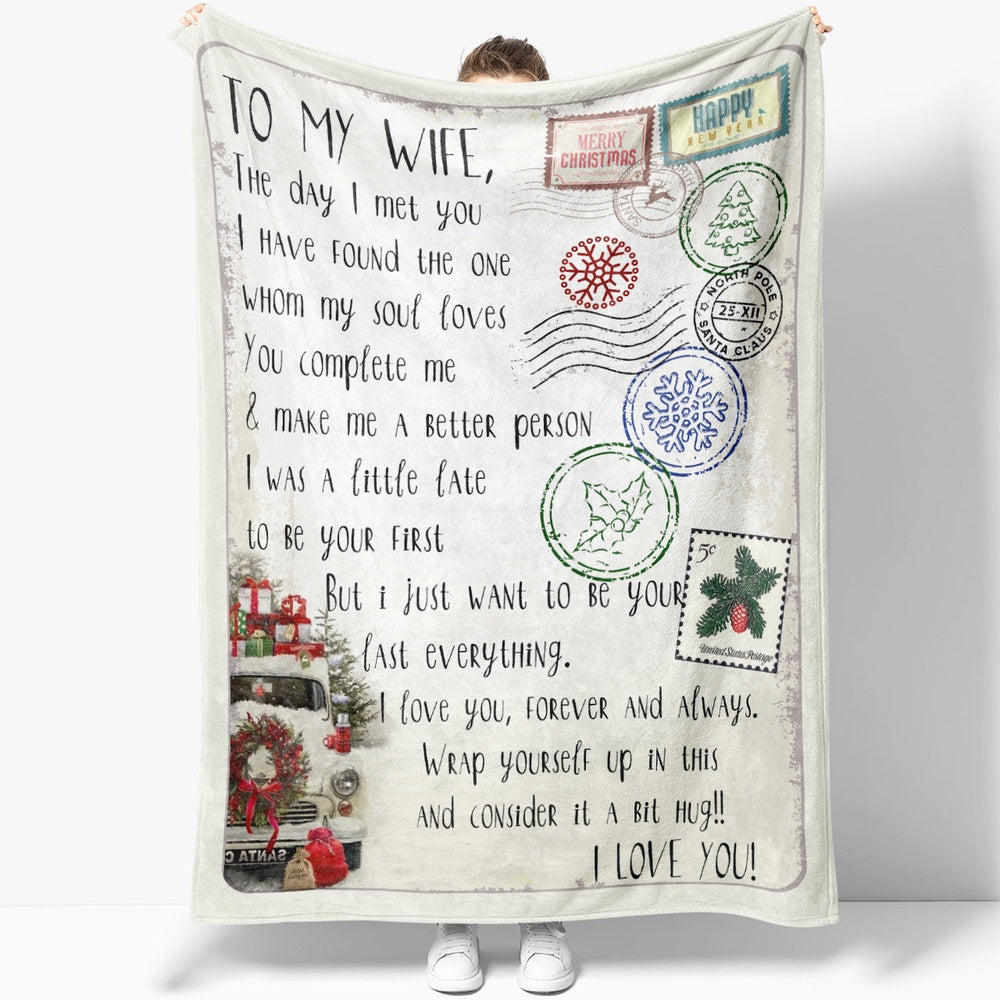 TO MY WIFE,
THE DAY I MET YOU
I HAVE FOUND THE ONE
WHOM MY SOUL LOVES
YOU COMPLETE ME
& MAKE ME A BETTER PERSON
I WAS A LITTLE LATE
TO BE YOUR FIRST
BUT I JUST WANT TO BE YOUR
LAST EVERYTHING.
I LOVE YOU, FOREVER AND ALWAYS.
WRAP YOURSELF UP IN THIS
AND CONSIDER IT A BIT HUG!!
I LOVE YOU!
MERRY
CHRISTMAS
HAPPY
NEW YEAR
SANTA
NORTH POLE
25-XII
SANTA CLAUS
5¢
United States Postage
SANTA C